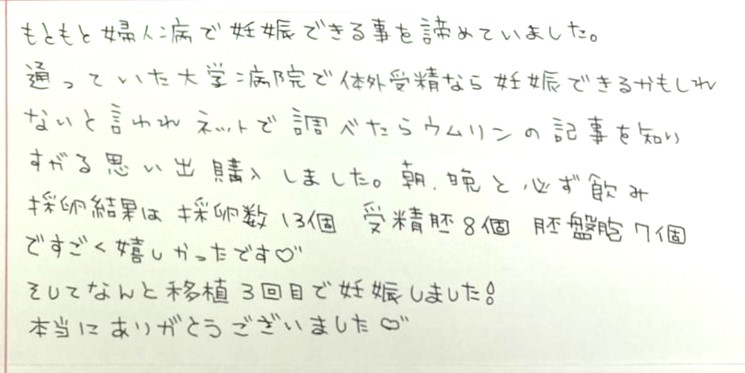 もともと婦人病で妊娠できる事を諦めていました。
通っていた大学病院で体外受精なら妊娠できるかもしれ
ないと言われネットで調べたらウムリンの記事を知り
すがる思い出購入しました。朝、晩と必ず飲み
採卵結果は採卵数13個 受精胚8個 胚盤胞7個
ですごく嬉しかったです♡
そしてなんと移植3回目で妊娠しました!
本当にありがとうございました♡